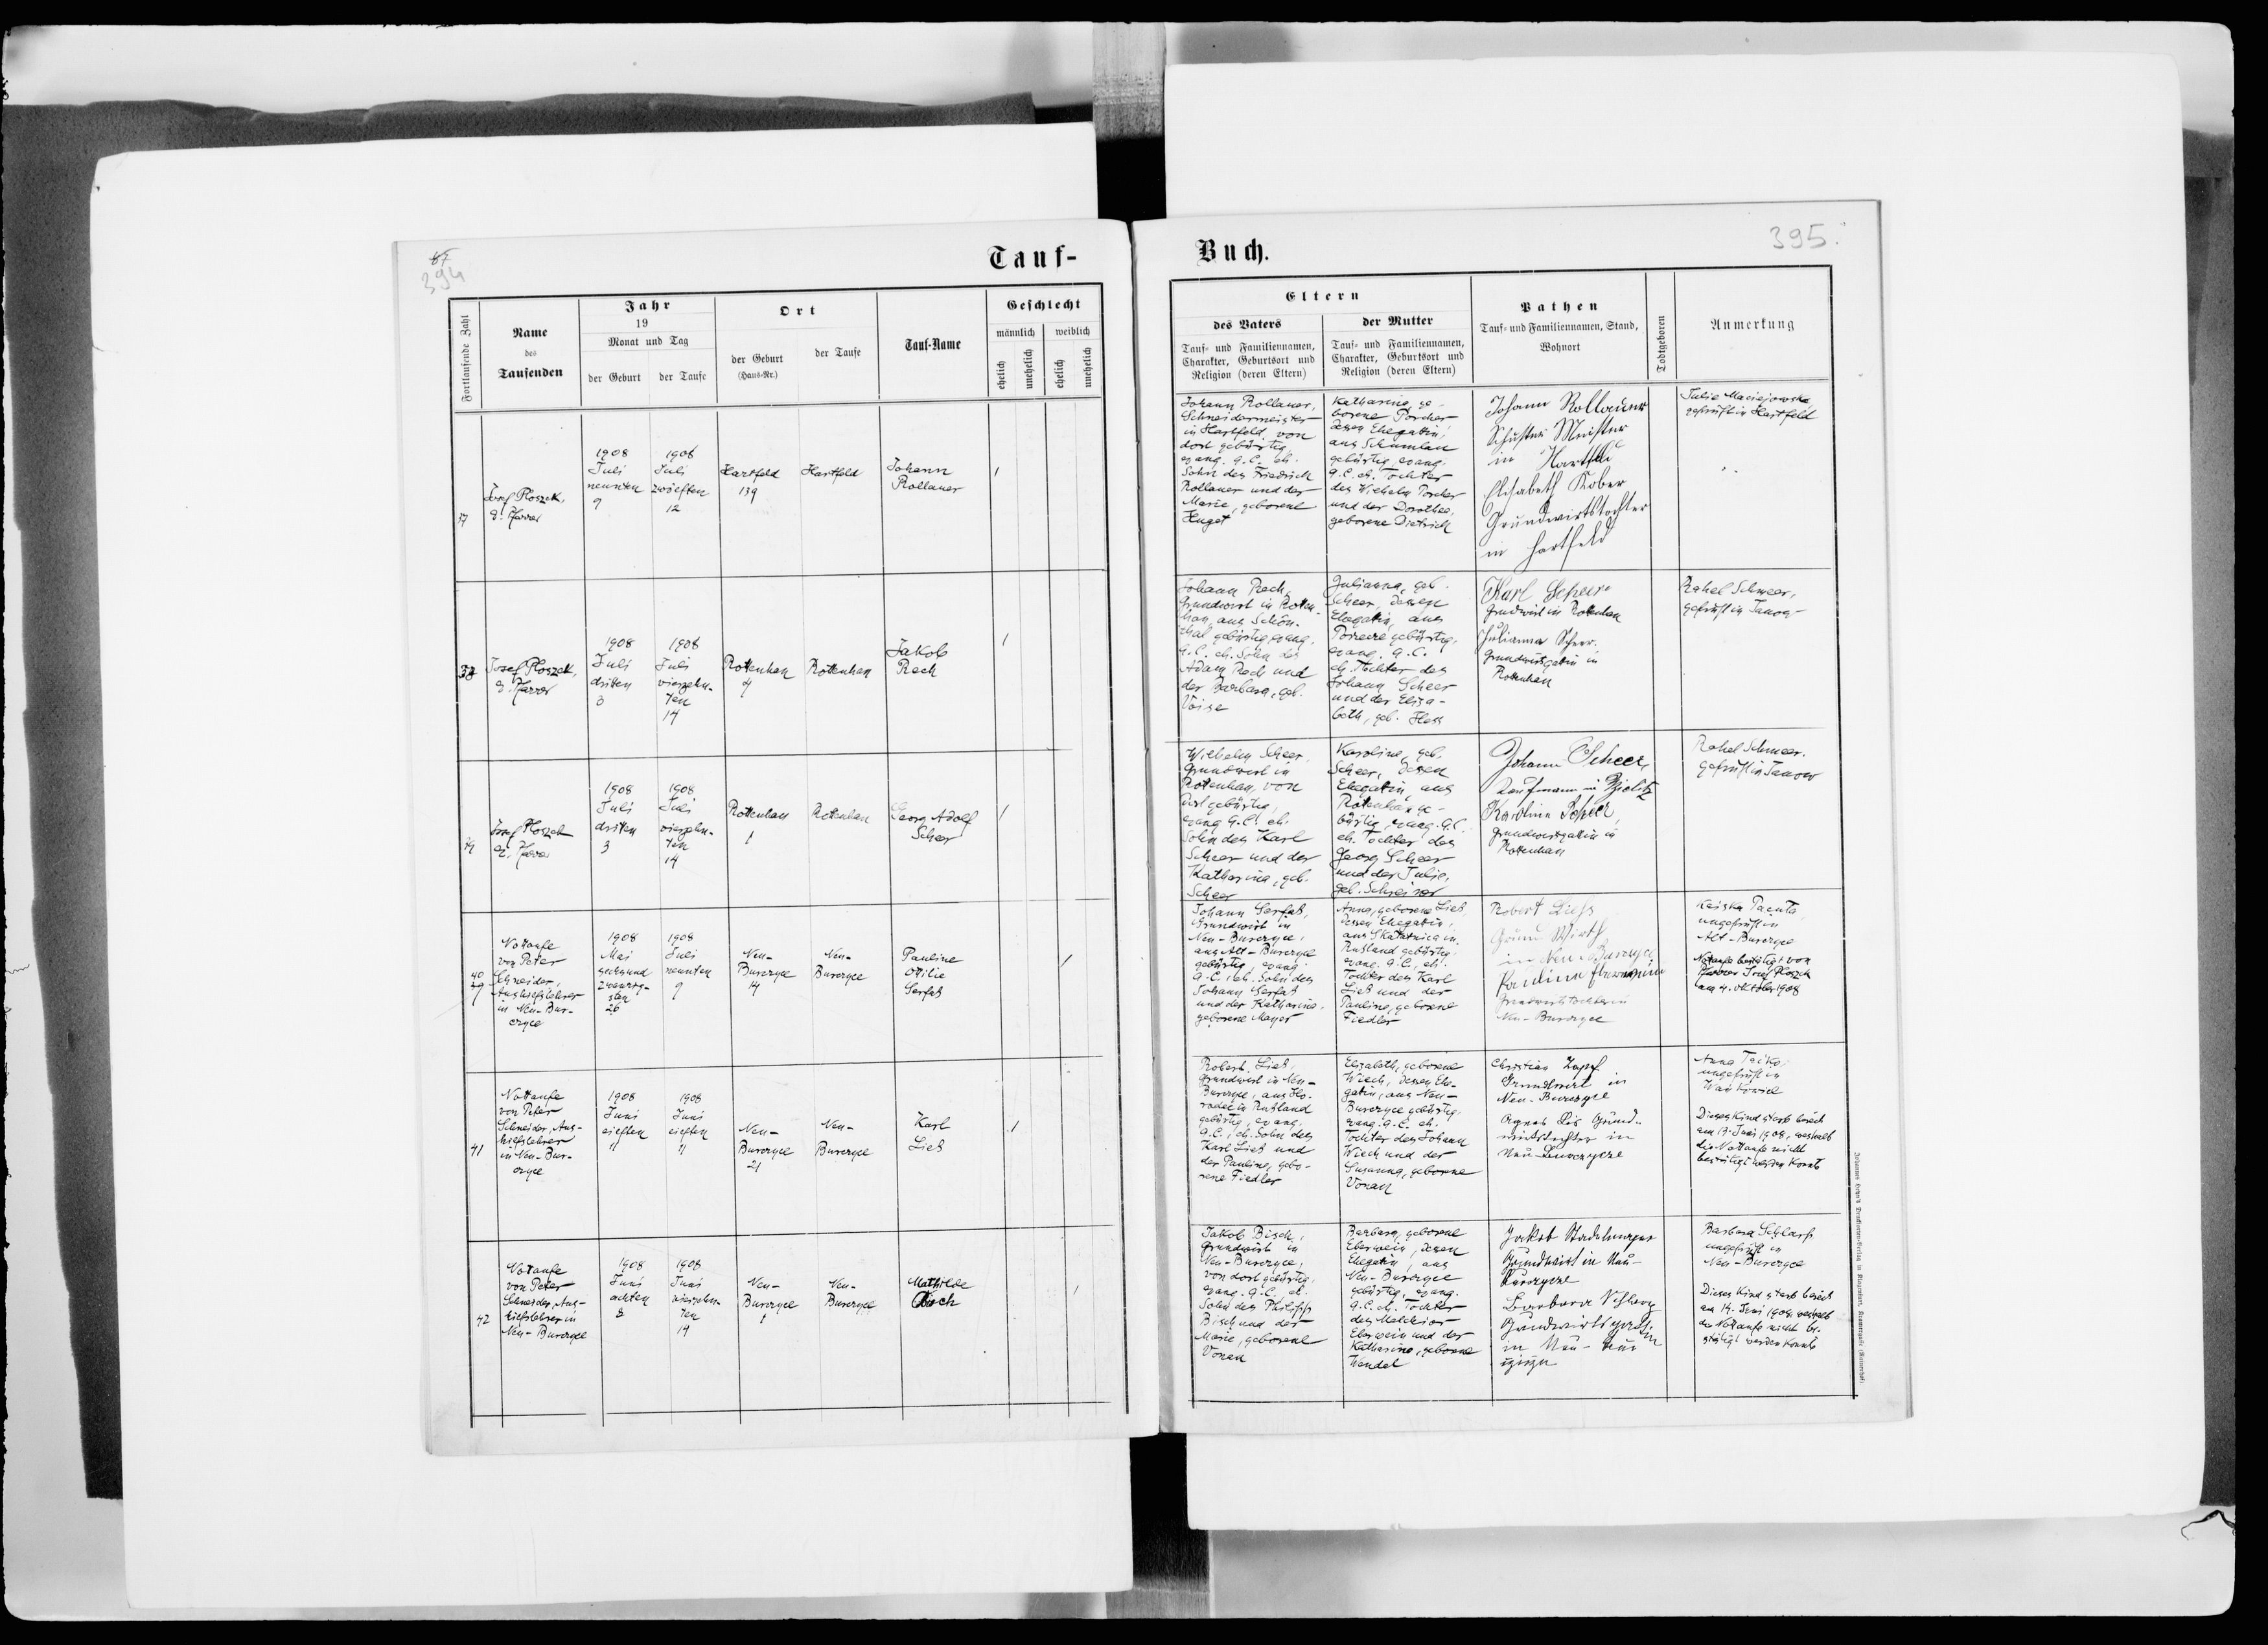 67
394
Tauf-
Fortlaufende Zahl
Name
des
Taufenden
Jahr
19
Monat und Tag
der Geburt
der Taufe
Ort
der Geburt
(Haus-Nr.)
der Taufe
Tauf-Name
Geschlecht
männlich
weiblich
ehelich
unehelich
ehelich
unehelich
37
Josef Ploszek,
ev. Pfarrer
1908
Juli
neunten
9
1908
Juli
zwölften
12
Hartfeld
139
Hartfeld
Johann
Rollauer
38
Josef Ploszek,
ev. Pfarrer
1908
Juli
dritten
3
1908
Juli
vierzehn-
ten
14
Rottenhan
4
Rottenhan
Jakob
Rech
Josef Ploszek
ev. Pfarrer
1908
Juli
dritten
3
1908
Juli
vierzehn-
ten
14
Rottenhan
1
Rottenhan
Georg Adolf
Scheer
40
Nottaufe
von Peter
Schneider,
Aushilfslehrer
in Neu-Bur-
czyce
1908
Mai
sechsund
zwanzig-
sten
26
1908
Juli
neunten
9
Neu-
Burczyce
14
Neu-
Burczyce
Pauline
Otilie
Serfas
41
Nottaufe
von Peter
Schneider, Aus-
hilfslehrer
in Neu-Bur-
czyce
1908
Juni
eilften
11
1908
Juni
eilften
11
Neu-
Burczyce
21
Neu-
Burczyce
Karl
Lies
42
Nottaufe
von Peter
Schneider, Aus-
hilfslehrer in
Neu-Burczyce
1908
Juni
achten
8
1908
Juni
vierzehn-
ten
14
Neu-
Burczyce
1
Neu-
Burczyce
Mathilde
Bisch
Buch.
395.
Eltern
des Vaters
Tauf- und Familiennamen,
Charakter, Geburtsort und
Religion (deren Eltern)
der Mutter
Tauf- und Familiennamen,
Charakter, Geburtsort und
Religion (deren Eltern)
Pathen
Tauf- und Familiennamen, Stand,
Wohnort
Todtgeboren
Anmerkung
Johann Rollauer,
Schneidermeister
in Hartfeld, von
dort gebürtig,
evang. A.C. eh.
Sohn des Friedrich
Rollauer und der
Marie, geborene
Huget
Katharina, ge-
borene Porcher
dessen Ehegattin,
aus Schumlau
gebürtig, evang.
A.C. eh. Tochter
des Wilhelm Porcher
und der Dorothea,
geborene Dietrich
Johann Rollauer
Schuster Meister
in Hartfeld
Elisabeth Kober
Grundwirtstochter
in Hartfeld
Julie Maciejowska,
geprüft in Hartfeld
Johann Rech,
Grundwirt in Rotten-
han, aus Schön-
thal gebürtig, evang.
A.C. eh. Sohn des
Adam Rech und
der Barbara, geb.
Julianna, geb.
Scheer, dessen
Ehegattin, aus
Porzecze gebürtig,
evang. A.C.
eh. Tochter des
Johann Scheer
und der Elisa-
beth, geb. Hess
Karl Scheer
Grundwirt in Rottenhan
Julianna Scheer
Grundwirtsgattin in
Rottenhan
Rahel Schmeer,
geprüft in Janow
Wilhelm Scheer,
Grundwirt in
Rottenhan, von
dort gebürtig,
evang. A.C. eh.
Sohn des Karl
Scheer und der
Katharina, geb.
Scheer
Karoline, geb.
Scheer, dessen
Ehegattin, aus
Rottenhan ge-
bürtig, evang. A.C.
eh. Tochter des
Georg Scheer
und der Julie,
Johann Scheer,
Kaufmann in Bielitz
Karoline Scheer,
Grundwirtsgattin in
Rottenhan
Rahel Schmeer.
geprüft in Janow
Johann Serfas,
Grundwirt in
Neu-Burczyce,
aus Alt-Burczyce
gebürtig, evang.
A.C., eh. Sohn des
Johann Serfas
und der Katharina,
geborene Mayer
Anna, geborene Lies,
dessen Ehegattin,
Rußland gebürtig,
evang. A.C., eh.
Tochter des Karl
Lies und der
Pauline, geborene
Fiedler
Robert Liess
Grund Wirth
in Neu-Burczyce
Grundwirtstochter in
Neu-Burczyce
ungeprüft in
Alt-Burczyce
Nottaufe bestätigt von
Pfarrer Josef Ploszek
am 4. Oktober 1908
Robert Lies,
Grundwirt in Neu-
gebürtig, evang.
A.C., eh. Sohn des
Karl Lies und
der Pauline, gebo-
rene Fiedler
Elisabeth, geborene
Wiech, dessen Ehe-
gattin, aus Neu-
Burczyce gebürtig,
evang. A.C. eh.
Tochter des Johann
Wiech und der
Susanna, geborene
Vonau
Christian Zapf
Grundwirt in
Neu-Burczyce
Agnes Lis Grund-
wirtstochter in
Neu-Burczyce
ungeprüft in
Dieses Kind starb bereits
am 17. Juni 1908, weshalb
die Nottaufe nicht
bestätigt werden konnte
Jakob Bisch,
Grundwirt in
Neu-Burczyce,
von dort gebürtig,
evang. A.C., eh.
Sohn des Philipp
Bisch und der
Marie, geborene
Vonau
Barbara, geborene
Eberwein, dessen
Ehegattin, aus
Neu-Burczyce
gebürtig, evang.
A.C. eh. Tochter
des Melchior
Eberwein und der
Katharina, geborene
Wendel
Grundwirt in Neu-
Burczyce
Barbara Schlarp
Grundwirtsgattin
in Neu-Bur
czyce
Barbara Schlarp
ungeprüft in
Neu-Burczyce
Dieses Kind starb bereits
am 19. Juni 1908, weshalb
die Nottaufe nicht be-
stätigt werden konnte